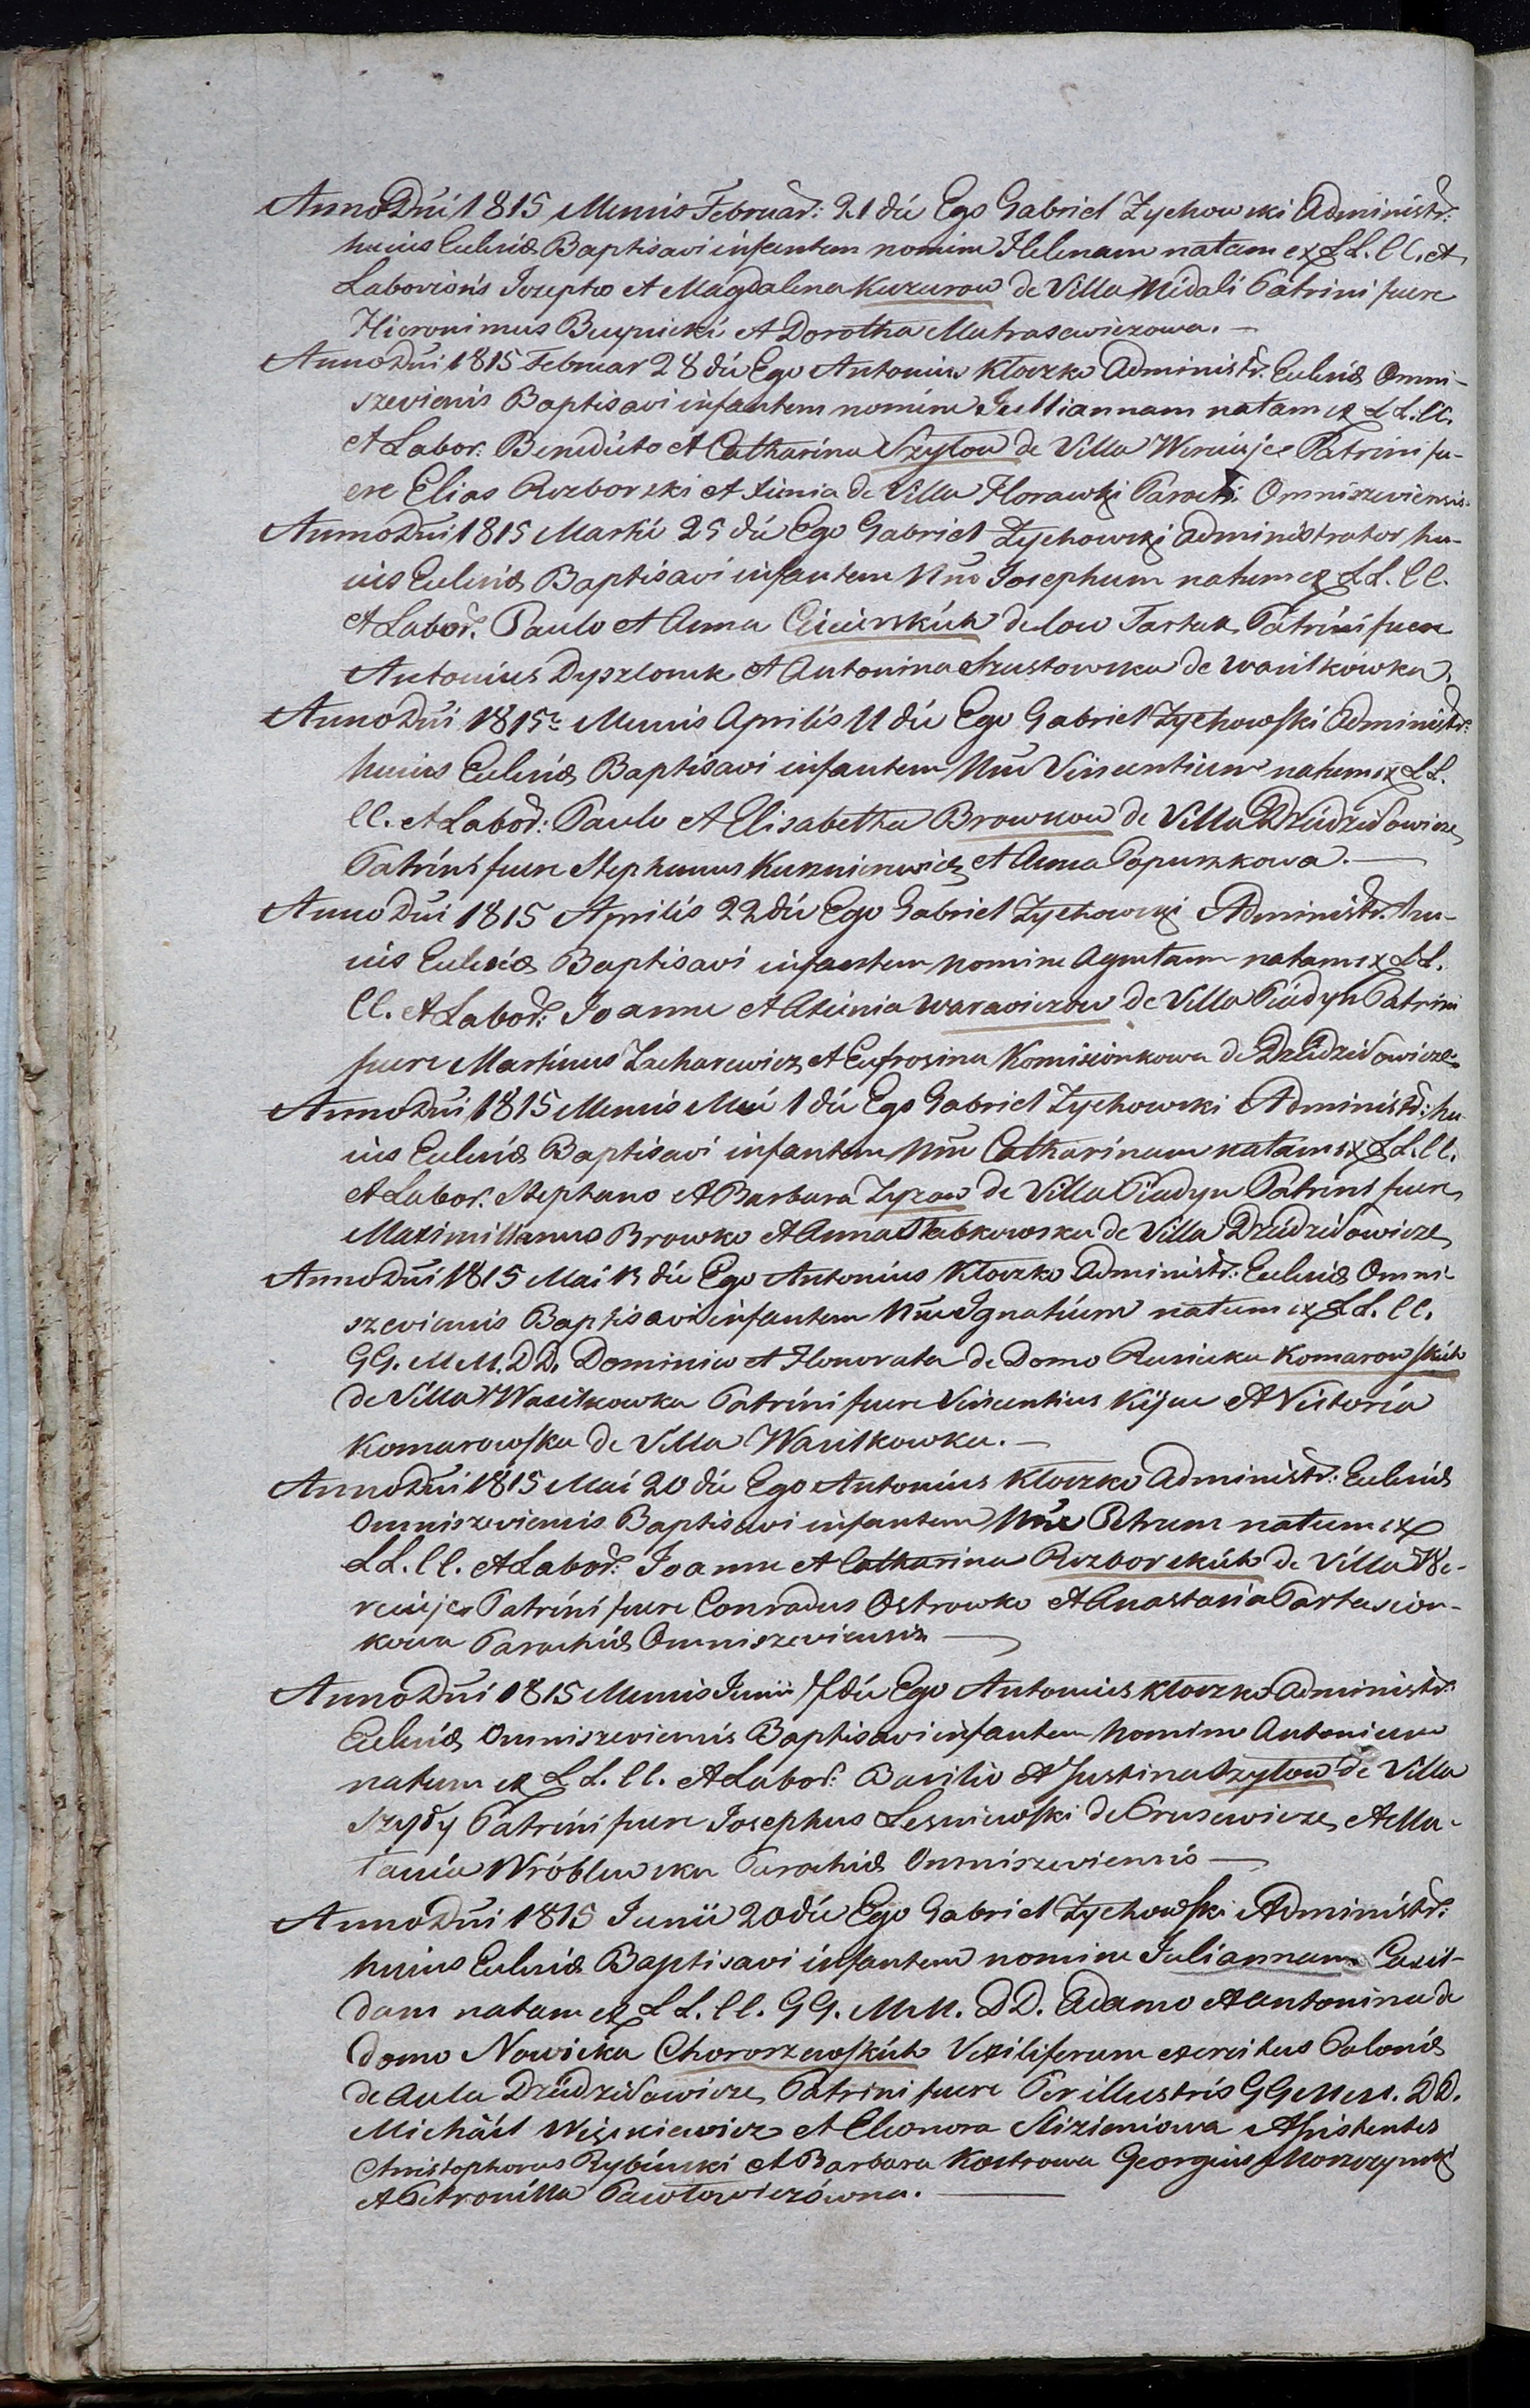 Anno Dni 1815 Mensis Februar: 21 die Ego Gabriel Zychowski Administr:
huius Ecclesiæ Baptisavi infantem nomine Helenam natam ex LL. CC. et
Laboriosis Josepho et Magdalena Kuzurow de Villa Midali Patrini fuere
Hieronimus Buynicki et Dorotha Matrasewiczowa. —
Anno Dni 1815 Februar 28 die Ego Antonius Kloczko Administr. Ecclesiæ Omni-
szeviensis Baptisavi infantem nomine Julliannam natam ex LL. CC.
et Labor: Benedicto et Catharina Szytow de Villa Wereujce Patrini fu-
ere Elias Rozborski et Xienia de Villa Horawki Paroch: Omniszeviensis.
Anno Dni 1815 Martii 25 die Ego Gabriel Zychowski administrator hu-
ius Ecclesiæ Baptisavi infantem Nne Josephum natum ex LL. CC.
et Labor. Paulo et Anna Cicierskich de loco Tartak Patrini fuere
Antonius Dyszlouk et Antonina Szustowska de Wasilkowka.
Anno Dni 1815 Mensis Aprilis 11 die Ego Gabriel Zychowski Administr:
huius Ecclesiæ Baptisavi infantem Nne Vincentium natum ex LL.
CC. et Labor: Paulo et Elisabetha Browkow de Villa Dziedziłowicze
Patrini fuere Stephanus Kusznierewicz et Anna Popuszkowa. —
Anno Dni 1815 Aprilis 22 die Ego Gabriel Zychowski Administr. hu-
ius Ecclesiæ Baptisavi infantem nomine Agnetam natam ex LL.
CC. et Labor: Joanne et Axinia Warawiczow de Villa Piadyn Patrini
fuere Martinus Zacharewicz et Eufrosina Komisionkowa de Dziedziłowicze
Anno Dni 1815 Mensis Mai 1 die Ego Gabriel Zychowski Administr: hu-
ius Ecclesiæ Baptisavi infantem Nne Catharinam natam ex LL. CC.
et Labor. Stephano et Barbara Zyzow de Villa Piadyn Patrini fuere
Maximillianus Browko et Anna Słabkowska de Villa Dziedziłowicze
Anno Dni 1815 Mai 13 die Ego Antonius Kloczko Administr: Ecclesiæ Omni-
szeviensis Baptisavi infantem Nne Ignatium natum ex LL. CC.
GG. MM. DD. Dominico et Honorata de Domo Rusiecka Komarowskich
de Villa Wasilkowka Patrini fuere Vincentius Kijuc et Victoria
Komarowska de Villa Wasilkowka. —
Anno Dni 1815 Mai 20 die Ego Antonius Kloczko Administr: Ecclesiæ
Omniszeviensis Baptisavi infantem Nne Petrum natum ex
LL. CC. et Labor: Joanne et Catharina Rozborskich de Villa We-
reujce Patrini fuere Conradus Ostrowko et Anastasia Partasion-
kowa Parochiæ Omniszeviensis —
Anno Dni 1815 Mensis Junii 7 die Ego Antonius Kloczko Administr:
Ecclesiæ Omniszeviensis Baptisavi infantem nomine Antonium
natum ex LL. CC. et Labor: Basilio et Justina Szytow de Villa
Szyły Patrini fuere Josephus Lesniewski de Prusewicze et Me-
łania Wróblewska Parochiæ Omniszeviensis —
Anno Dni 1815 Junii 20 die Ego Gabriel Zychowski Administr:
huius Ecclesiæ Baptisavi infantem nomine Juliannam Casil-
dam natam ex LL. CC. GG. MM. DD. Adamo et Antonina de
domo Nowicka Choroszewskich Vexiliferum exercitus Poloniæ
de Aula Dziedziłowicze Patrini fuere Perillustris GG MM. DD.
Michael Wiszkiewicz et Eleonora Slizieniowa Assistentes
Christophorus Rybinski et Barbara Kostrowa Georgius Morozynski
et Petronilla Pawłowiczówna. —